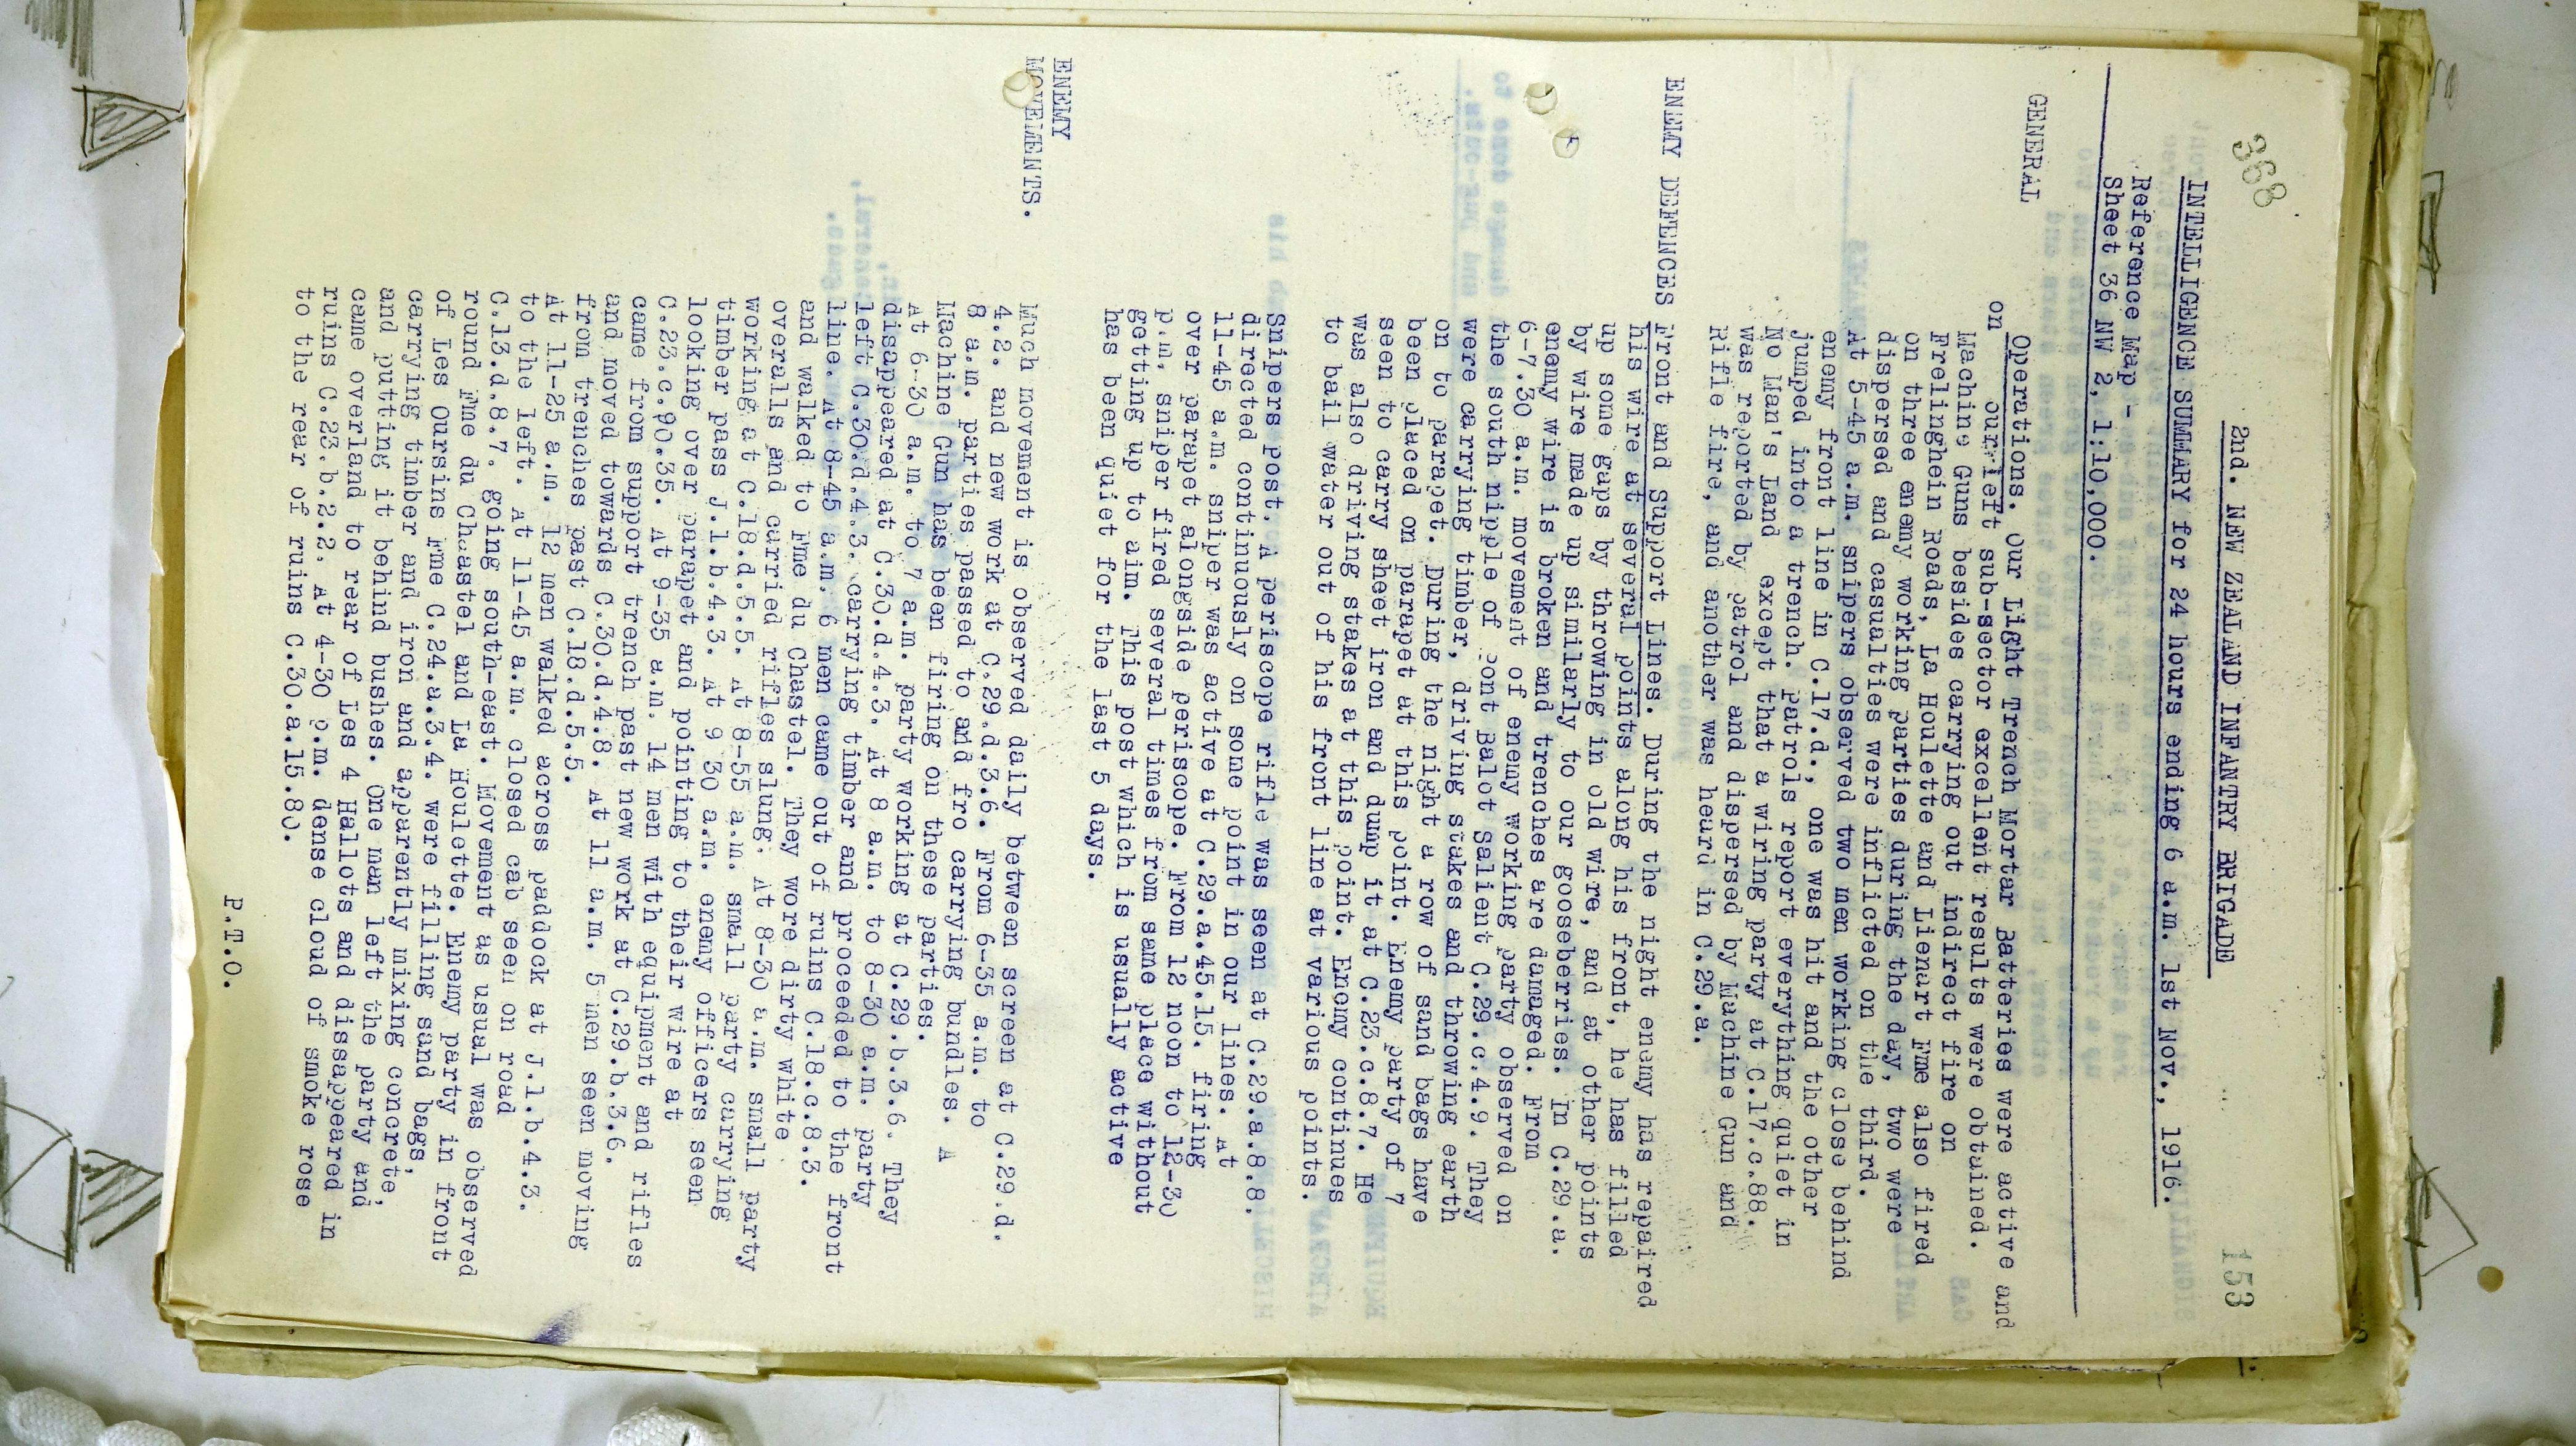 368
153
2nd. NEW ZEALAND INFANTRY BRIGADE
INTELLIGENCE SUMMARY for 24 hours ending 6 a.m. 1st Nov., 1916.
Reference Map -
Sheet 36 NW 2, 1:10,000.
GENERAL
Operations. Our Light Trench Mortar Batteries were active and
on our left sub-sector excellent results were obtained.
Machine Guns besides carrying out indirect fire on
Frelinghein Roads, La Houlette and Lienart Fme also fired
on three enemy working parties during the day, two were
dispersed and casualties were inflicted on the third.
At 5-45 a.m. snipers observed two men working close behind
enemy front line in C.17.d., one was hit and the other
jumped into a trench. Patrols report everything quiet in
No Man's Land except that a wiring party at C.17.c.88.
was reported by patrol and dispersed by Machine Gun and
Rifle fire, and another was heard in C.29.a.
ENEMY DEFENCES Front and Support Lines. During the night enemy has repaired
his wire at several points along his front, he has filled
up some gaps by throwing in old wire, and at other points
by wire made up similarly to our gooseberries. In C.29.a.
enemy wire is broken and trenches are damaged. From
6-7.30 a.m. movement of enemy working party observed on
the south nipple of Pont Balot Salient C.29.c.4.9. They
were carrying timber, driving stakes and throwing earth
on to parapet. During the night a row of sand bags have
been placed on parapet at this point. Enemy party of 7
seen to carry sheet iron and dump it at C.23.c.8.7. He
was also driving stakes at this point. Enemy continues
to bail water out of his front line at various points.
Snipers post. A periscope rifle was seen at C.29.a.8.8.
directed continuously on some point in our lines. At
11-45 a.m. sniper was active at C.29.a.45.15. firing
over parapet alongside periscope. From 12 noon to 12-30
p.m. sniper fired several times from same place without
getting up to aim. This post which is usually active
has been quiet for the last 5 days.
ENEMY
MOVEMENTS.
Much movement is observed daily between screen at C.29.d.
4.2. and new work at C.29.d.3.6. From 6-35 a.m. to
8 a.m. parties passed to and fro carrying bundles. A
Machine Gun has been firing on these parties.
At 6-30 a.m. to 7 a.m. party working at C.29.b.3.6. They
disappeared at C.30.d.4.3. At 8 a.m. to 8-30 a.m. party
left C.30.d.4.3. carrying timber and proceeded to the front
line. At 8-45 a.m. 6 men came out of ruins C.18.c.8.3.
and walked to Fme du Chastel. They wore dirty white
overalls and carried rifles slung. At 8-30 a.m. small party
working at C.18.d.5.5. At 8-55 a.m. small party carrying
timber pass J.1.b.4.3. At 9 30 a.m. enemy officers seen
looking over parapet and pointing to their wire at
C.23.c.90.35. At 9-35 a.m. 14 men with equipment and rifles
came from support trench past new work at C.29.b.3.6.
and moved towards C.30.d.4.8. At 11 a.m. 5 men seen moving
from trenches past C.18.d.5.5.
At 11-25 a.m. 12 men walked across paddock at J.1.b.4.3.
to the left. At 11-45 a.m. closed cab seen on road
C.13.d.8.7. going south-east. Movement as usual was observed
round Fme du Chastel and La Houlette. Enemy party in front
of Les Oursins Fme C.24.a.3.4. were filling sand bags,
carrying timber and iron and apparently mixing concrete,
and putting it behind bushes. One man left the party and,
came overland to rear of Les 4 Hallots and dissappeared in
ruins C.23.b.2.2. At 4-30 p.m. dense cloud of smoke rose
to the rear of ruins C.30.a.15.80.
P.T.O.